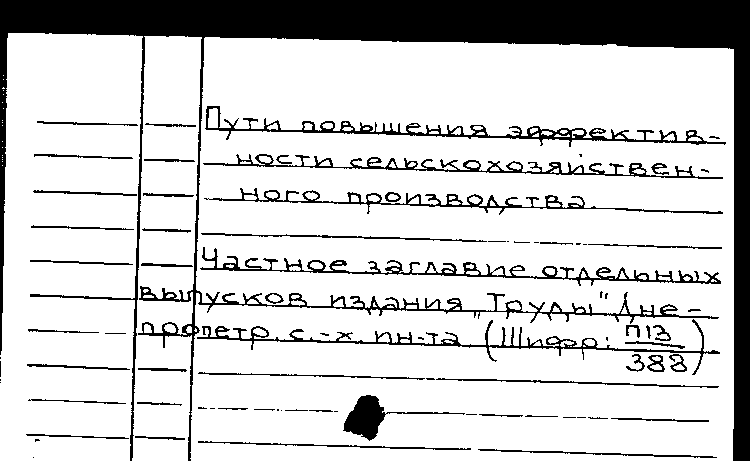 Пути повышения эффектив-
ности сельскохозяйствен-
ного производства.
Частное заглавие отдельных
выпусков издания „Труды" Дне-
пропетр. с.-х. ин-та (Шифр: П13
388)